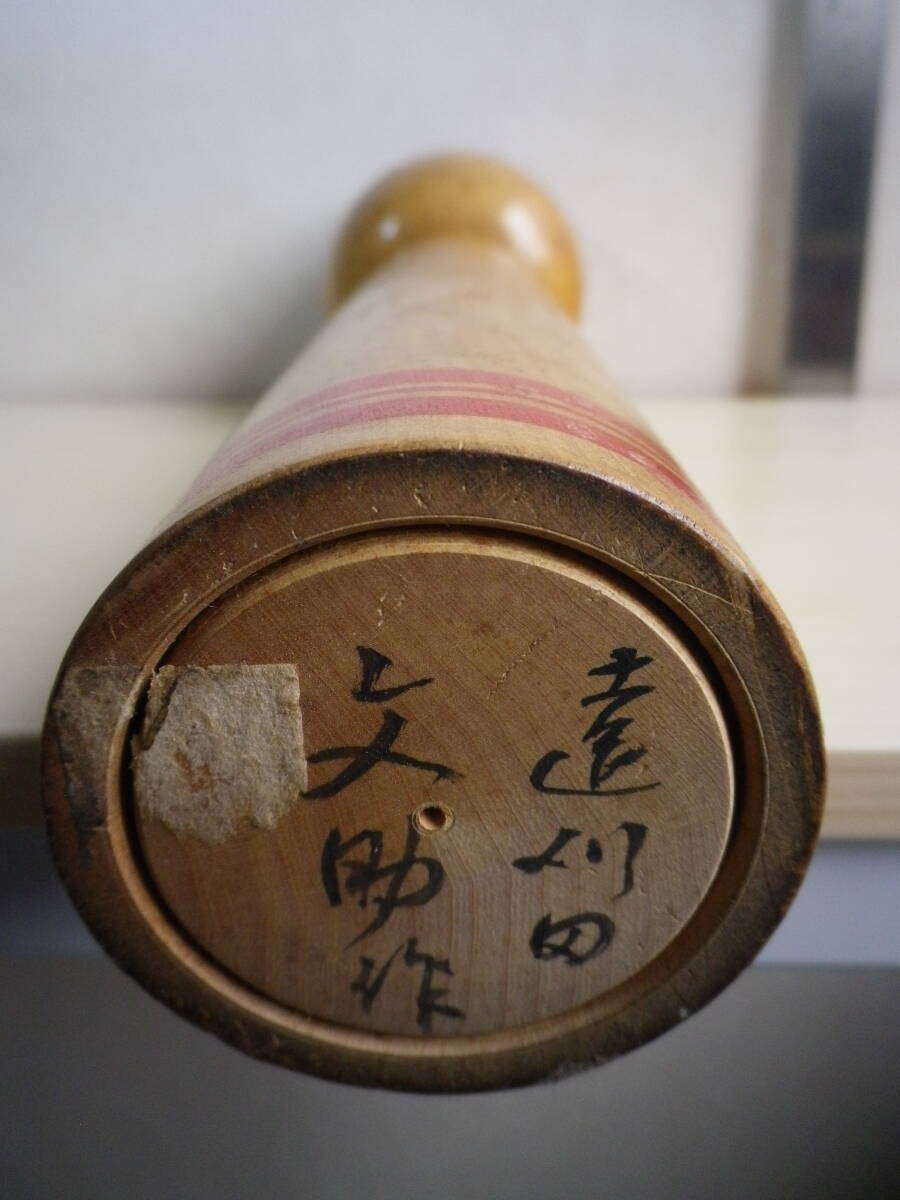 遠刈田
文助作